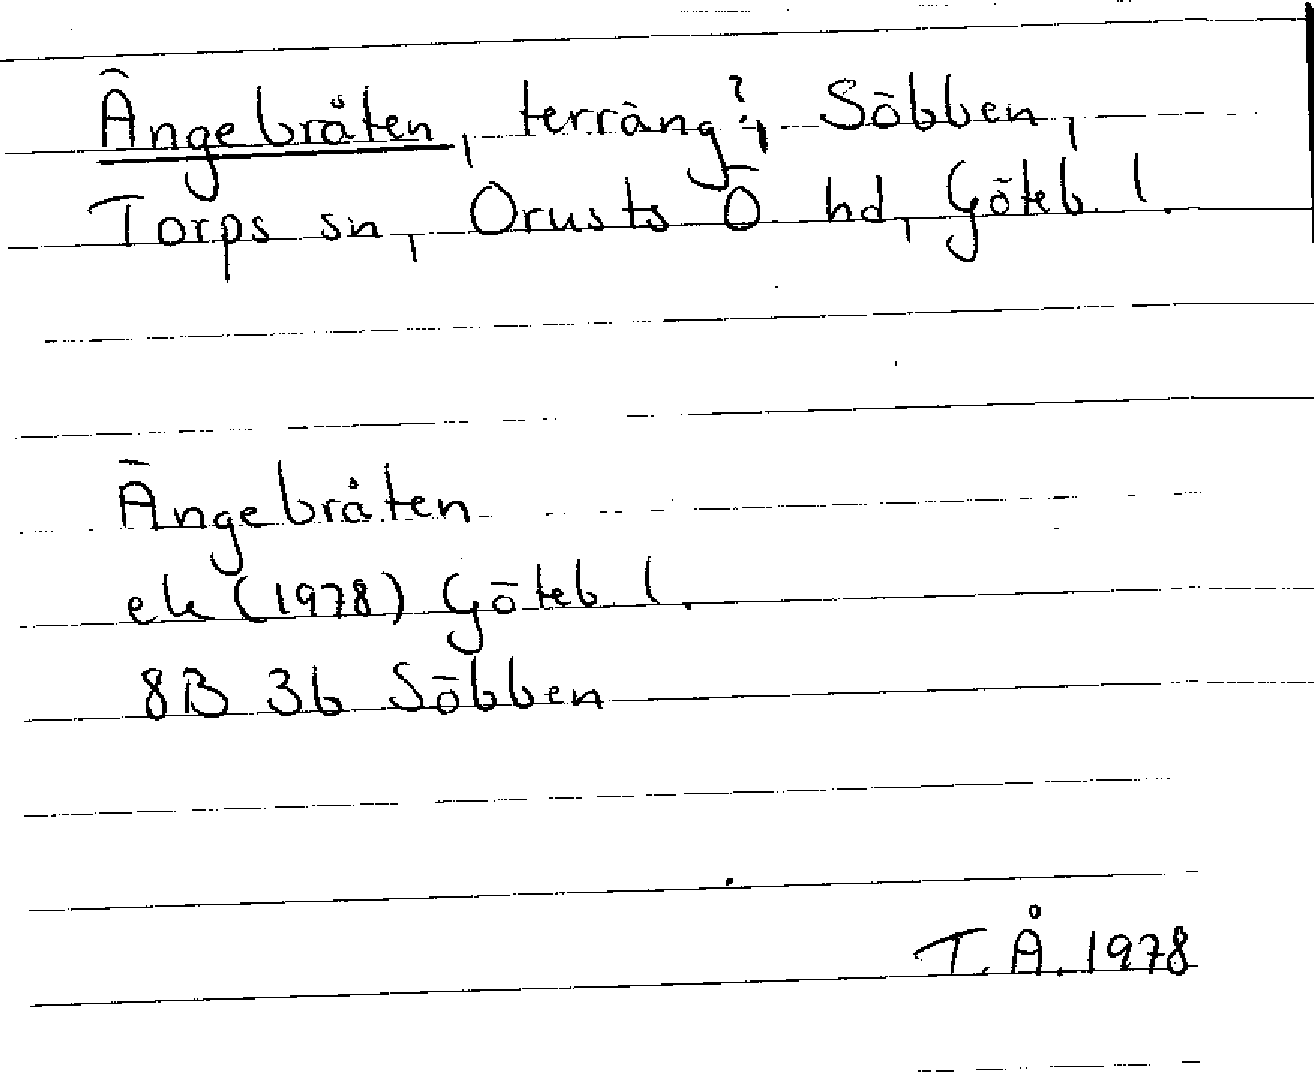 Ängebråten, terräng?, Söbben,
Torps sn, Orusts Ö hd, Göteb l.
Ängebråten
ek (1978) Göteb l.
8B 3b Söbben
T. Å. 1978